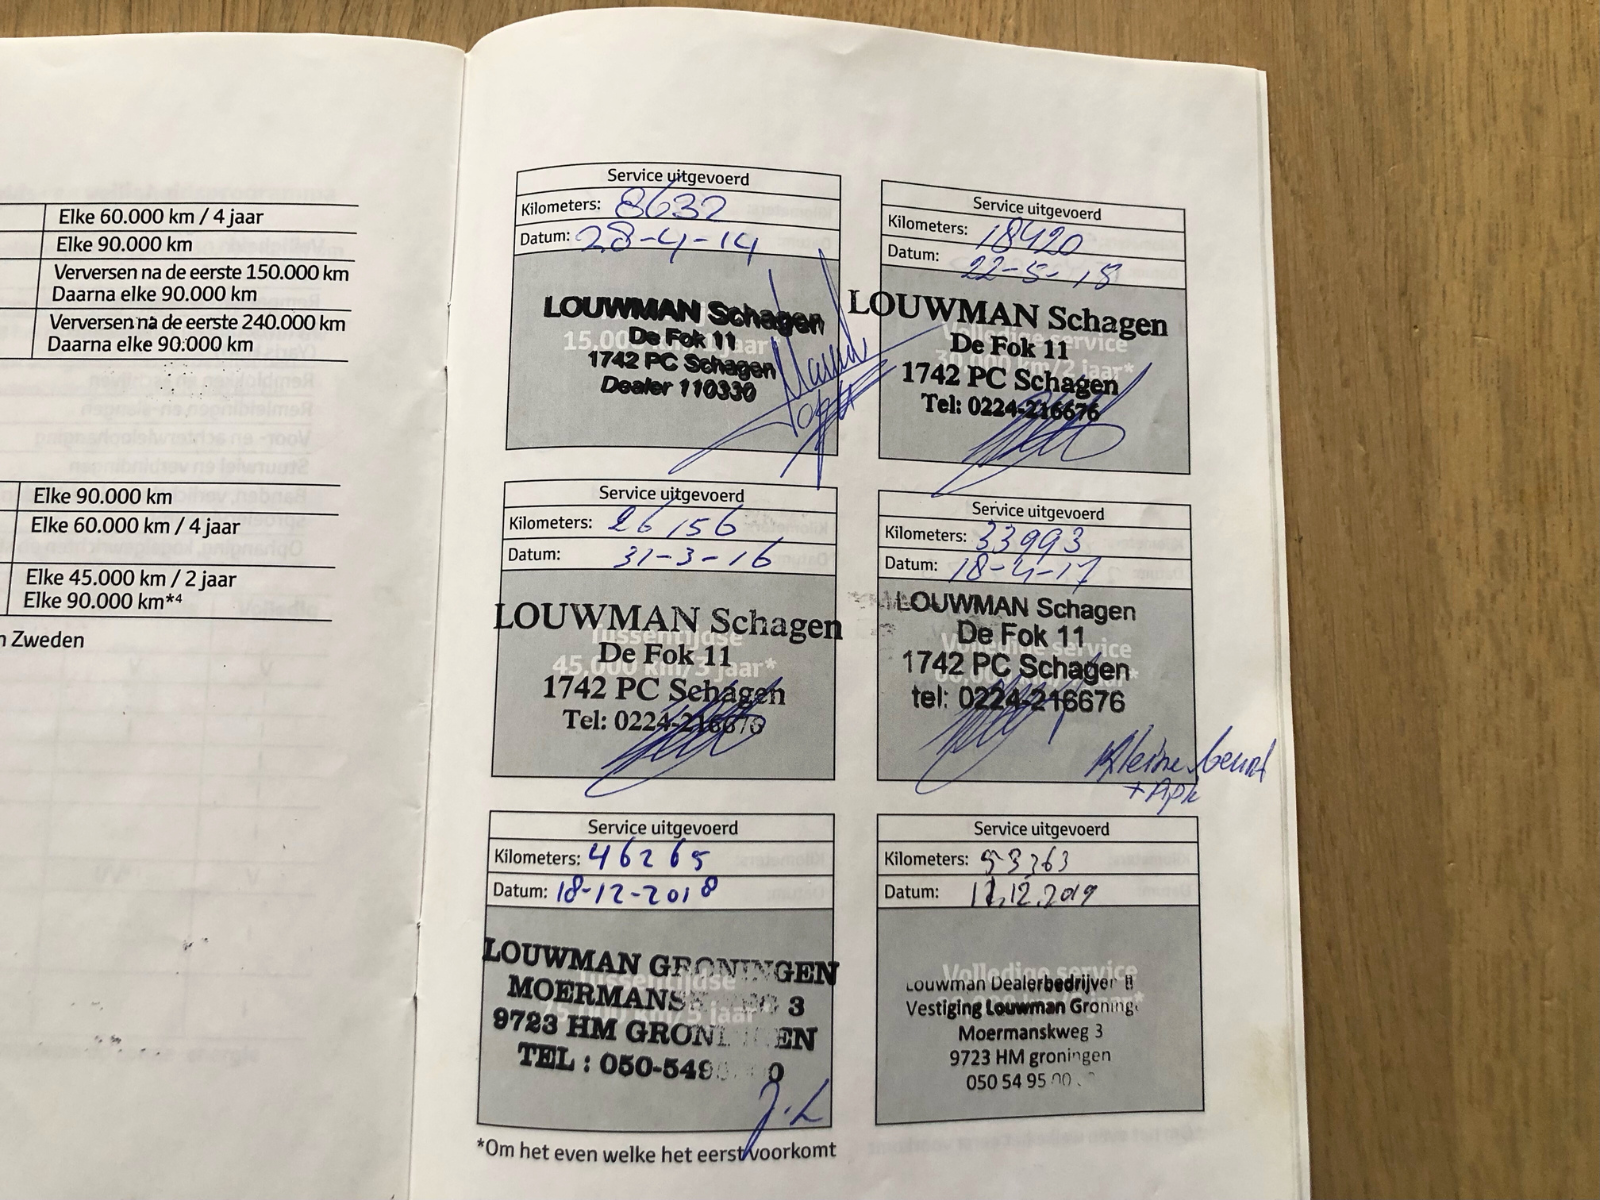 Elke 60.000 km / 4 jaar
Elke 90.000 km
Verversen na de eerste 150.000 km
Daarna elke 90.000 km
Verversen na de eerste 240.000 km
Daarna elke 90.000 km
Elke 90.000 km
Elke 60.000 km / 4 jaar
Elke 45.000 km / 2 jaar
Elke 90.000 km*4
n Zweden
Service uitgevoerd
Kilometers: 8632
Datum: 28-4-14
15.000 km/1 jaar*
LOUWMAN Schagen
De Fok 11
1742 PC Schagen
Dealer 110330
Service uitgevoerd
Kilometers: 18420
Datum: 22-5-15
Volledige service
30.000 km/2 jaar*
LOUWMAN Schagen
De Fok 11
1742 PC Schagen
Tel: 0224-216676
Service uitgevoerd
Kilometers: 26156
Datum: 31-3-16
Tussentijdse
45.000 km/3 jaar*
LOUWMAN Schagen
De Fok 11
1742 PC Schagen
Tel: 0224-216676
Service uitgevoerd
Kilometers: 33993
Datum: 18-4-17
Volledige service
LOUWMAN Schagen
De Fok 11
1742 PC Schagen
tel: 0224-216676
Kleine beurt
+ Apk
Service uitgevoerd
Kilometers: 46265
Datum: 18-12-2018
Tussentijdse
LOUWMAN GRONINGEN
3
9723 HM GRONINGEN
TEL :
J.L
Service uitgevoerd
Kilometers: 53363
Datum: 12.12.2019
Volledige service
Louwman Dealerbedrijven B
Vestiging Louwman Groninge
Moermanskweg 3
9723 HM groningen
050 54 95 00
*Om het even welke het eerst voorkomt